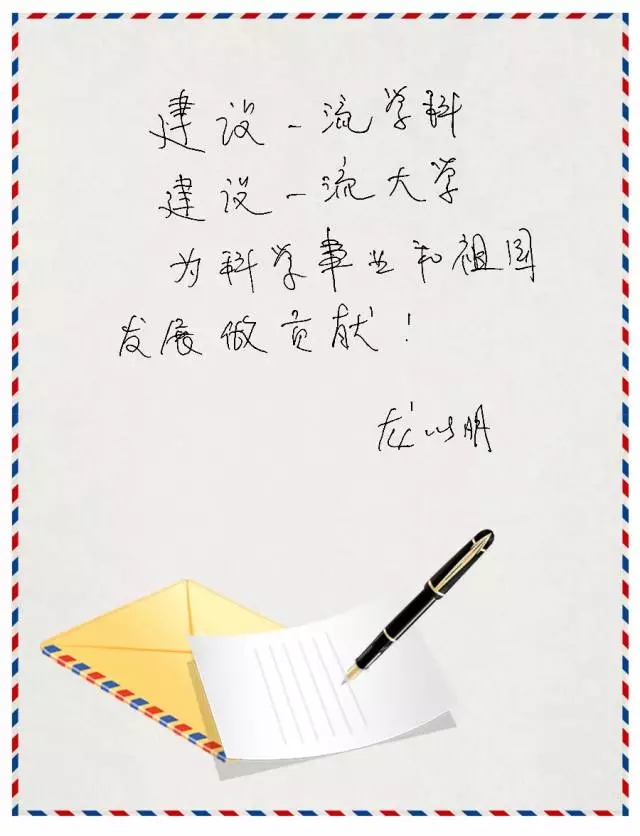 建设一流学科
建设一流大学
为科学事业和祖国
发展做贡献！
龙以明